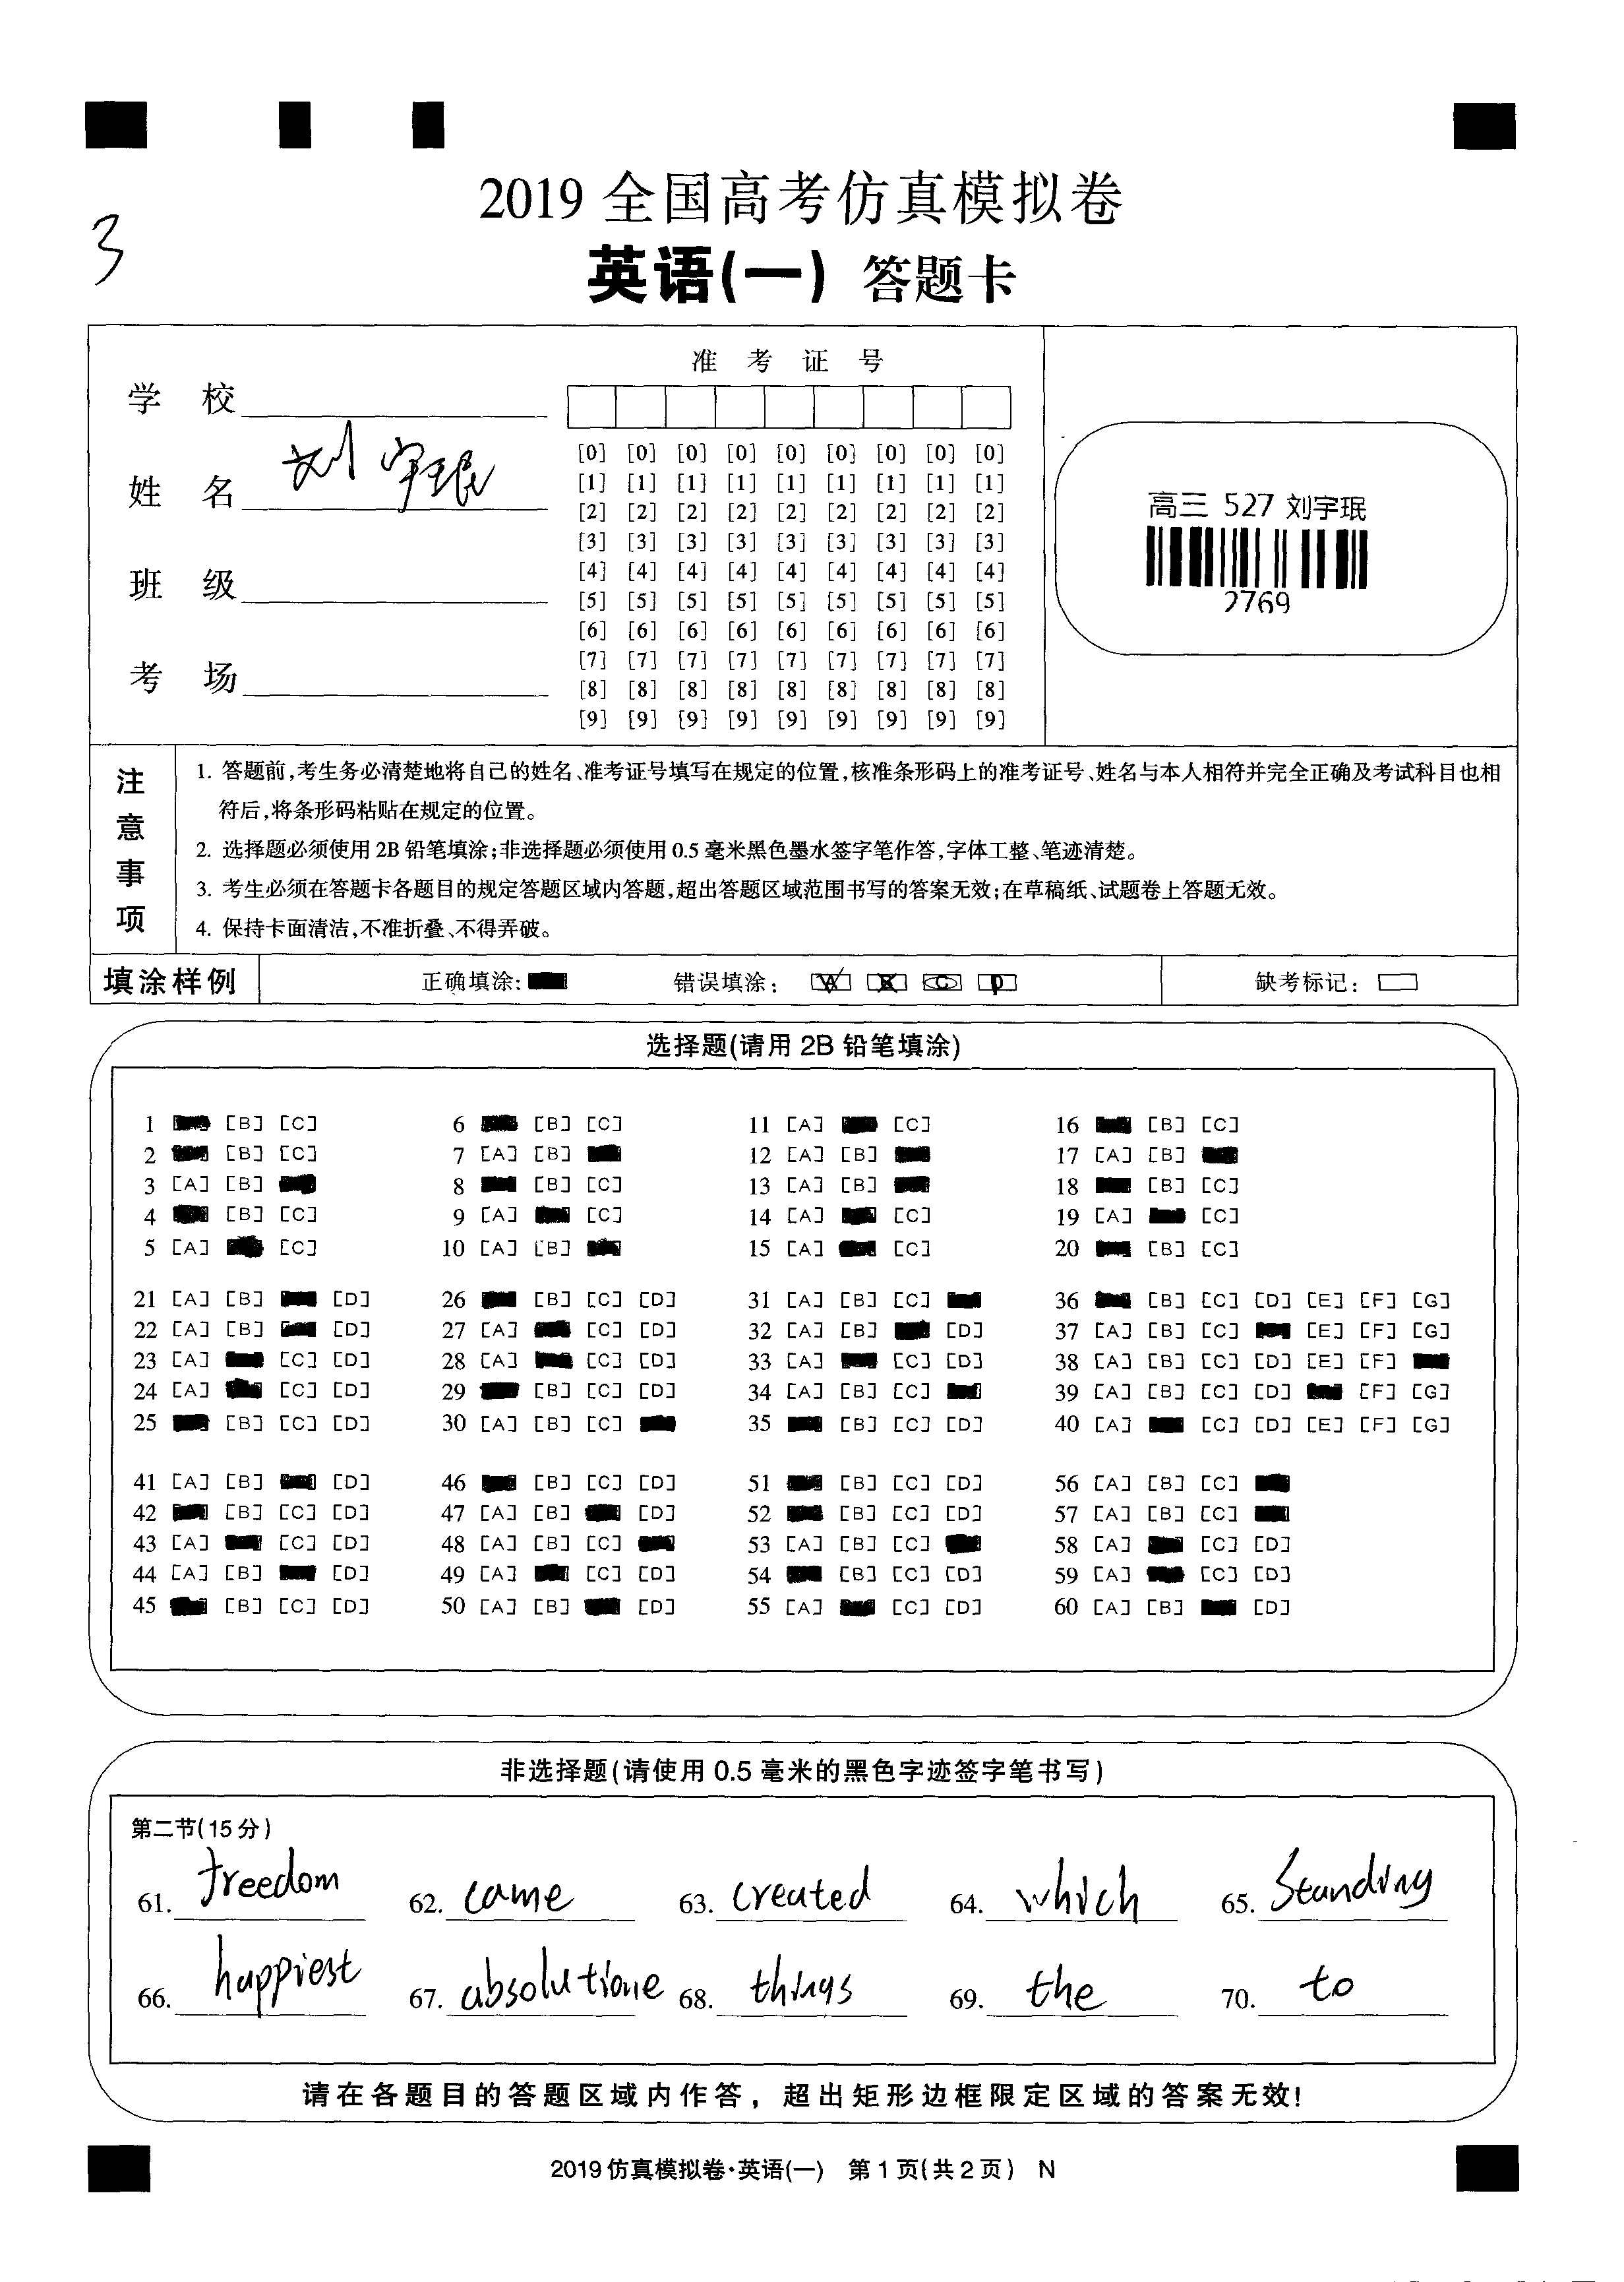 3
2019 全国高考仿真模拟卷
英语(一) 答题卡
学 校
姓 名 刘宇珉
班 级
考 场
准 考 证 号
[0] [0] [0] [0] [0] [0] [0] [0] [0]
[1] [1] [1] [1] [1] [1] [1] [1] [1]
[2] [2] [2] [2] [2] [2] [2] [2] [2]
[3] [3] [3] [3] [3] [3] [3] [3] [3]
[4] [4] [4] [4] [4] [4] [4] [4] [4]
[5] [5] [5] [5] [5] [5] [5] [5] [5]
[6] [6] [6] [6] [6] [6] [6] [6] [6]
[7] [7] [7] [7] [7] [7] [7] [7] [7]
[8] [8] [8] [8] [8] [8] [8] [8] [8]
[9] [9] [9] [9] [9] [9] [9] [9] [9]
高三 527 刘宇珉
2769
注意事项
1. 答题前,考生务必清楚地将自己的姓名、准考证号填写在规定的位置,核准条形码上的准考证号、姓名与本人相符并完全正确及考试科目也相
符后,将条形码粘贴在规定的位置。
2. 选择题必须使用 2B 铅笔填涂;非选择题必须使用 0.5 毫米黑色墨水签字笔作答,字体工整、笔迹清楚。
3. 考生必须在答题卡各题目的规定答题区域内答题,超出答题区域范围书写的答案无效;在草稿纸、试题卷上答题无效。
4. 保持卡面清洁,不准折叠、不得弄破。
填涂样例 正确填涂: 错误填涂: A B C D 缺考标记:
选择题(请用 2B 铅笔填涂)
1 [B] [C] 6 [B] [C] 11 [A] [C] 16 [B] [C]
2 [B] [C] 7 [A] [B] 12 [A] [B] 17 [A] [B]
3 [A] [B] 8 [B] [C] 13 [A] [B] 18 [B] [C]
4 [B] [C] 9 [A] [C] 14 [A] [C] 19 [A] [C]
5 [A] [C] 10 [A] [B] 15 [A] [C] 20 [B] [C]
21 [A] [B] [D] 26 [B] [C] [D] 31 [A] [B] [C] 36 [B] [C] [D] [E] [F] [G]
22 [A] [B] [D] 27 [A] [C] [D] 32 [A] [B] [D] 37 [A] [B] [C] [E] [F] [G]
23 [A] [C] [D] 28 [A] [C] [D] 33 [A] [C] [D] 38 [A] [B] [C] [D] [E] [F]
24 [A] [C] [D] 29 [B] [C] [D] 34 [A] [B] [C] 39 [A] [B] [C] [D] [F] [G]
25 [B] [C] [D] 30 [A] [B] [C] 35 [B] [C] [D] 40 [A] [C] [D] [E] [F] [G]
41 [A] [B] [D] 46 [B] [C] [D] 51 [B] [C] [D] 56 [A] [B] [C]
42 [B] [C] [D] 47 [A] [B] [D] 52 [B] [C] [D] 57 [A] [B] [C]
43 [A] [C] [D] 48 [A] [B] [C] 53 [A] [B] [C] 58 [A] [C] [D]
44 [A] [B] [D] 49 [A] [C] [D] 54 [B] [C] [D] 59 [A] [C] [D]
45 [B] [C] [D] 50 [A] [B] [D] 55 [A] [C] [D] 60 [A] [B] [D]
非选择题(请使用 0.5 毫米的黑色字迹签字笔书写)
第二节(15 分)
61. freedom 62. came 63. created 64. which 65. Standing
66. happiest 67. absolutione 68. things 69. the 70. to
请在各题目的答题区域内作答，超出矩形边框限定区域的答案无效!
2019 仿真模拟卷·英语(一) 第 1 页(共 2 页) N